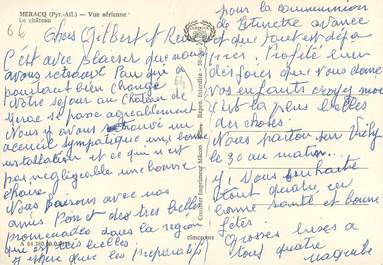 MERACQ (Pyr.-Atl.) — Vue aérienne
Le château
66
Chers Gilbert et
C'est avec plaisir que nous
avons retrouvé Pau qui a
pourtant bien changé
Notre séjour au Château de
Merac se passe agréablement
Nous y avons retrouvé un
accueil sympathique, une bonne
installation et ce qui n'est
pas négligeable une bonne
chaire!
Nous passons avec nos
amis Pons et des très belles
promenades dans la région
qui est très belle
J'espère que les préparatifs
pour la communion
de avance
et que tout est déjà
. Profité bien
des joies que vous donne
vos enfants croyez moi
c'est la plus belles
des choses.
Nous partons sur Vichy
le 30 au matin.
Je vous souhaite
tout quatre, en
bonne santé et bonne
fêtes.
Grosses bises a
tous quatre
Combier Imprimeur Mâcon